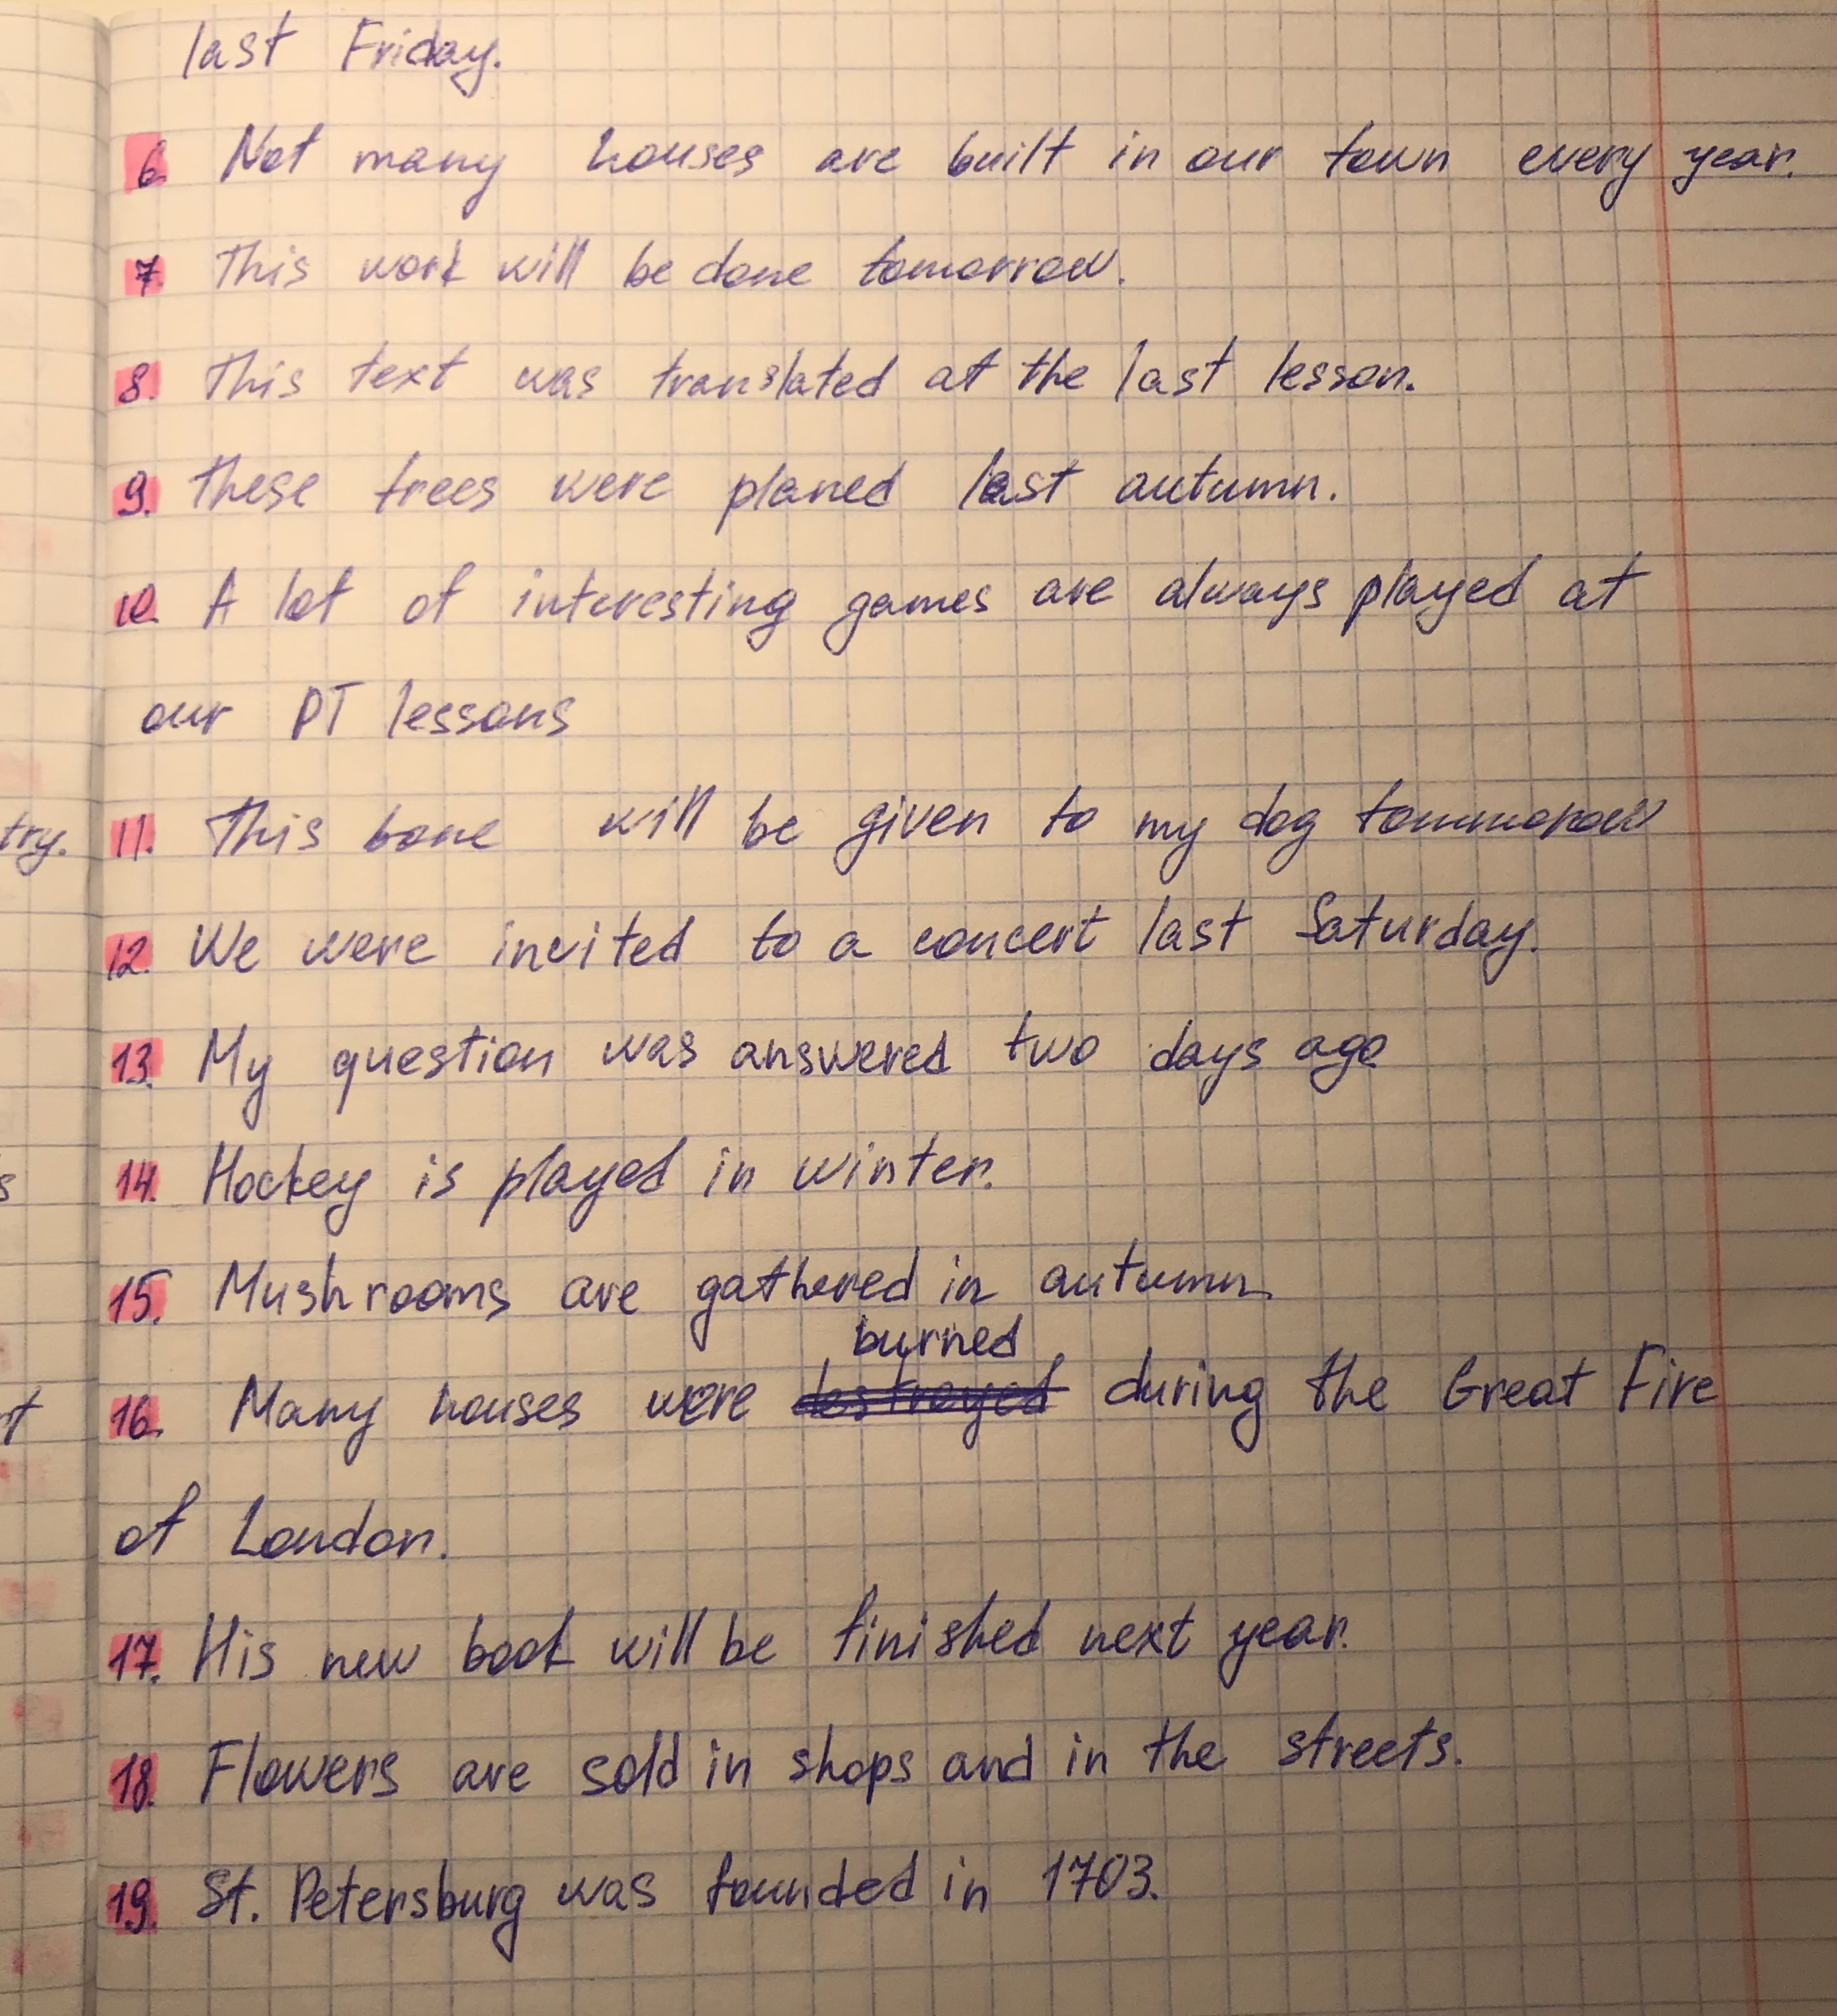 last Friday.
6. Not many houses are built in our town every year.
7. This work will be done tomorrow.
8. This text was translated at the last lesson.
9. These trees were planed last autumn.
10. A lot of interesting games are always played at
our PT lessons
try. 11. This bone will be given to my dog tommorow
12. We were invited to a concert last Saturday.
13. My question was answered two days ago
14. Hockey is played in winter.
15. Mushrooms are gathered in autumn.
burned
16. Many houses were destroyed during the Great Fire
of London.
17. His new book will be finished next year.
18. Flowers are sold in shops and in the streets.
19. St. Petersburg was founded in 1703.